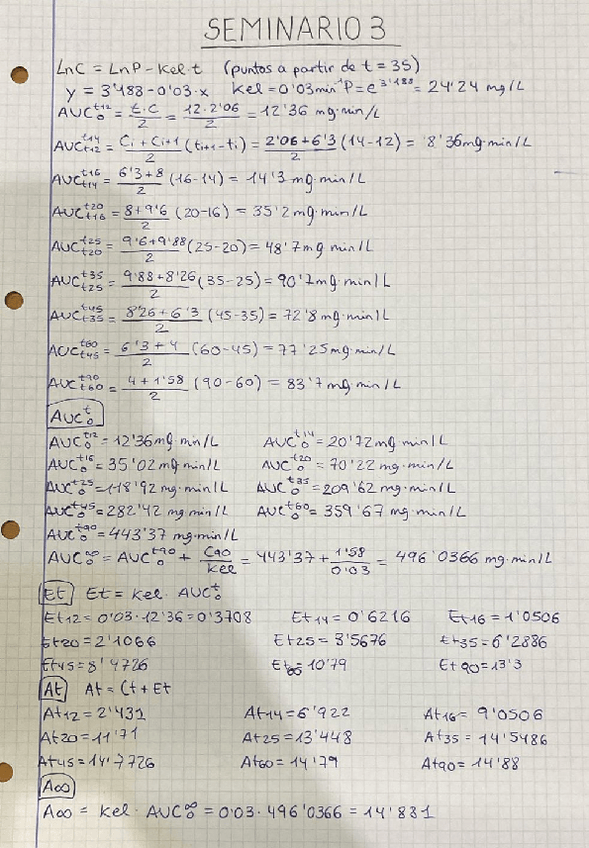 SEMINARIO 3
LnC = LnP - Kel·t (puntos a partir de t = 35)
y = 3'188 - 0'03·x Kel = 0'03 min⁻¹ P = e^3'188 = 24'24 mg/L
AUC₀^t12 = t·C/2 = 12·2'06/2 = 12'36 mg·min/L
AUC_t12^t14 = Ci + Ci+1/2 (ti+1 - ti) = 2'06 + 6'3/2 (14-12) = 8'36 mg·min/L
AUC_t14^t16 = 6'3 + 8/2 (16-14) = 14'3 mg·min/L
AUC_t16^t20 = 8 + 9'6/2 (20-16) = 35'2 mg·min/L
AUC_t20^t25 = 9'6 + 9'88/2 (25-20) = 48'7 mg min/L
AUC_t25^t35 = 9'88 + 8'26/2 (35-25) = 90'7 mg·min/L
AUC_t35^t45 = 8'26 + 6'3/2 (45-35) = 72'8 mg·min/L
AUC_t45^t60 = 6'3 + 4/2 (60-45) = 77'25 mg·min/L
AUC_t60^t90 = 4 + 1'58/2 (90-60) = 83'7 mg·min/L
AUC₀^t
AUC₀^t12 = 12'36 mg·min/L AUC₀^t14 = 20'72 mg min/L
AUC₀^t16 = 35'02 mg min/L AUC₀^t20 = 70'22 mg·min/L
AUC₀^t25 = 118'92 mg·min/L AUC₀^t35 = 209'62 mg·min/L
AUC₀^t45 = 282'42 mg min/L AUC₀^t60 = 359'67 mg·min/L
AUC₀^t90 = 443'37 mg·min/L
AUC₀^∞ = AUC₀^t90 + C90/Kel = 443'37 + 1'58/0'03 = 496'0366 mg·min/L
Et Et = Kel · AUC₀^t
Et12 = 0'03·12'36 = 0'3708 Et14 = 0'6216 Et16 = 1'0506
Et20 = 2'1066 Et25 = 3'5676 Et35 = 6'2886
Et45 = 8'4726 Et60 = 10'79 Et90 = 13'3
At At = Ct + Et
At12 = 2'431 At14 = 6'922 At16 = 9'0506
At20 = 11'71 At25 = 13'448 At35 = 14'5486
At45 = 14'7726 At60 = 14'79 At90 = 14'88
A∞
A∞ = Kel · AUC₀^∞ = 0'03 · 496'0366 = 14'881